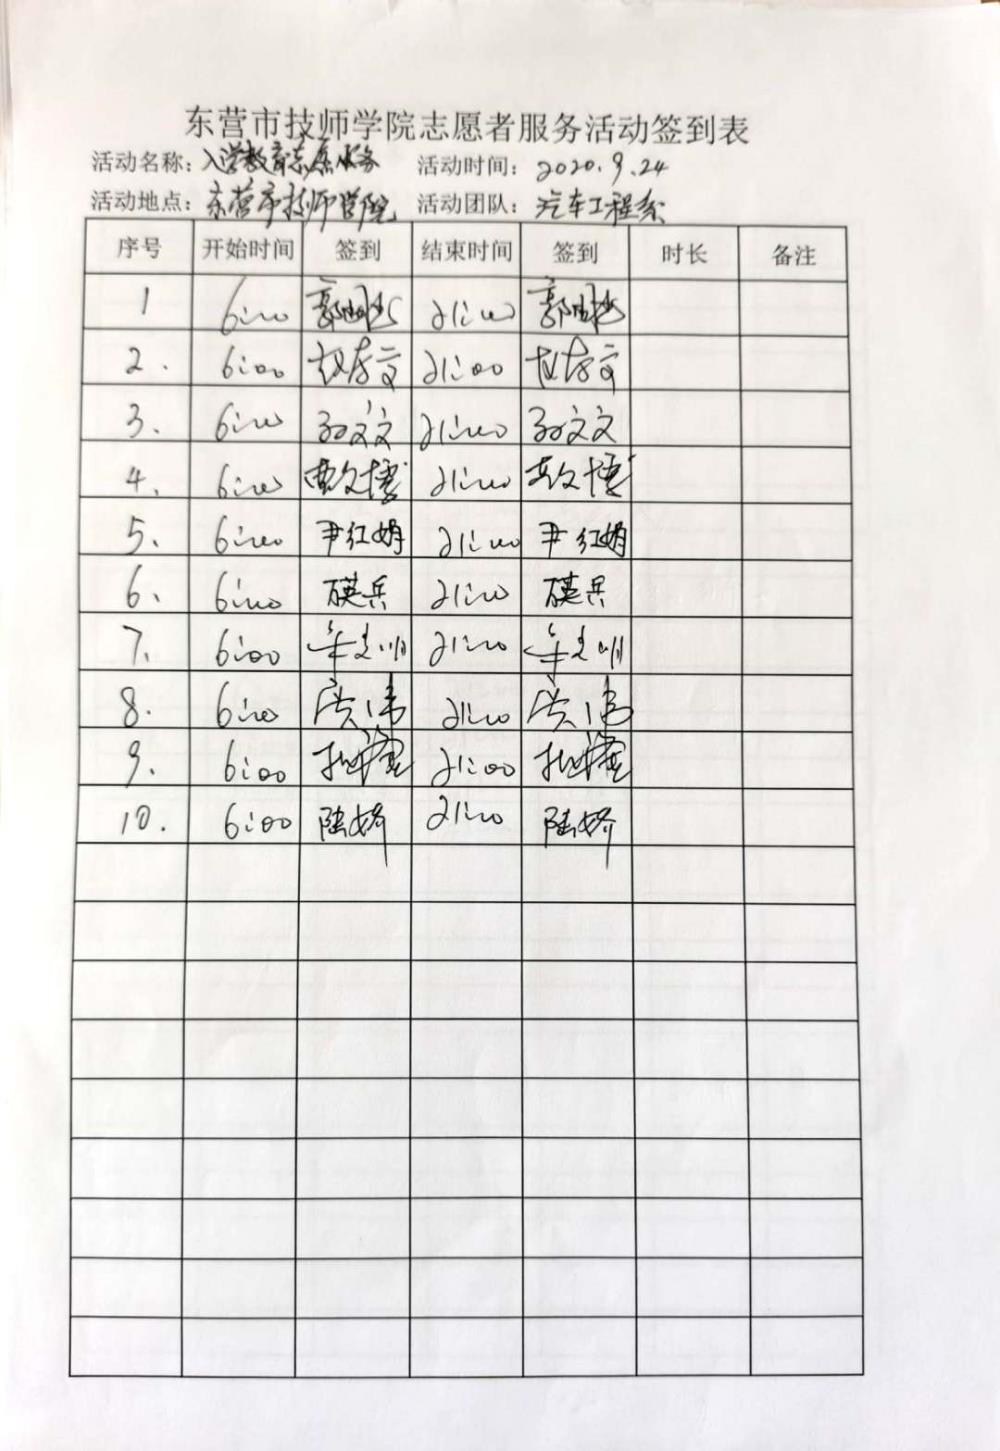 东营市技师学院志愿者服务活动签到表
活动名称：入学教育志愿服务 活动时间：2020.9.24
活动地点：东营市技师学院 活动团队：汽车工程系
序号 开始时间 签到 结束时间 签到 时长 备注
1 6:00 21:00
2. 6:00 21:00
3. 6:00 孙文文 21:00 孙文文
4. 6:00 21:00
5. 6:00 尹红娟 21:00 尹红娟
6. 6:00 21:00
7. 6:00 21:00
8. 6:00 洪伟 21:00 洪伟
9. 6:00 21:00
10. 6:00 陆娇 21:00 陆娇